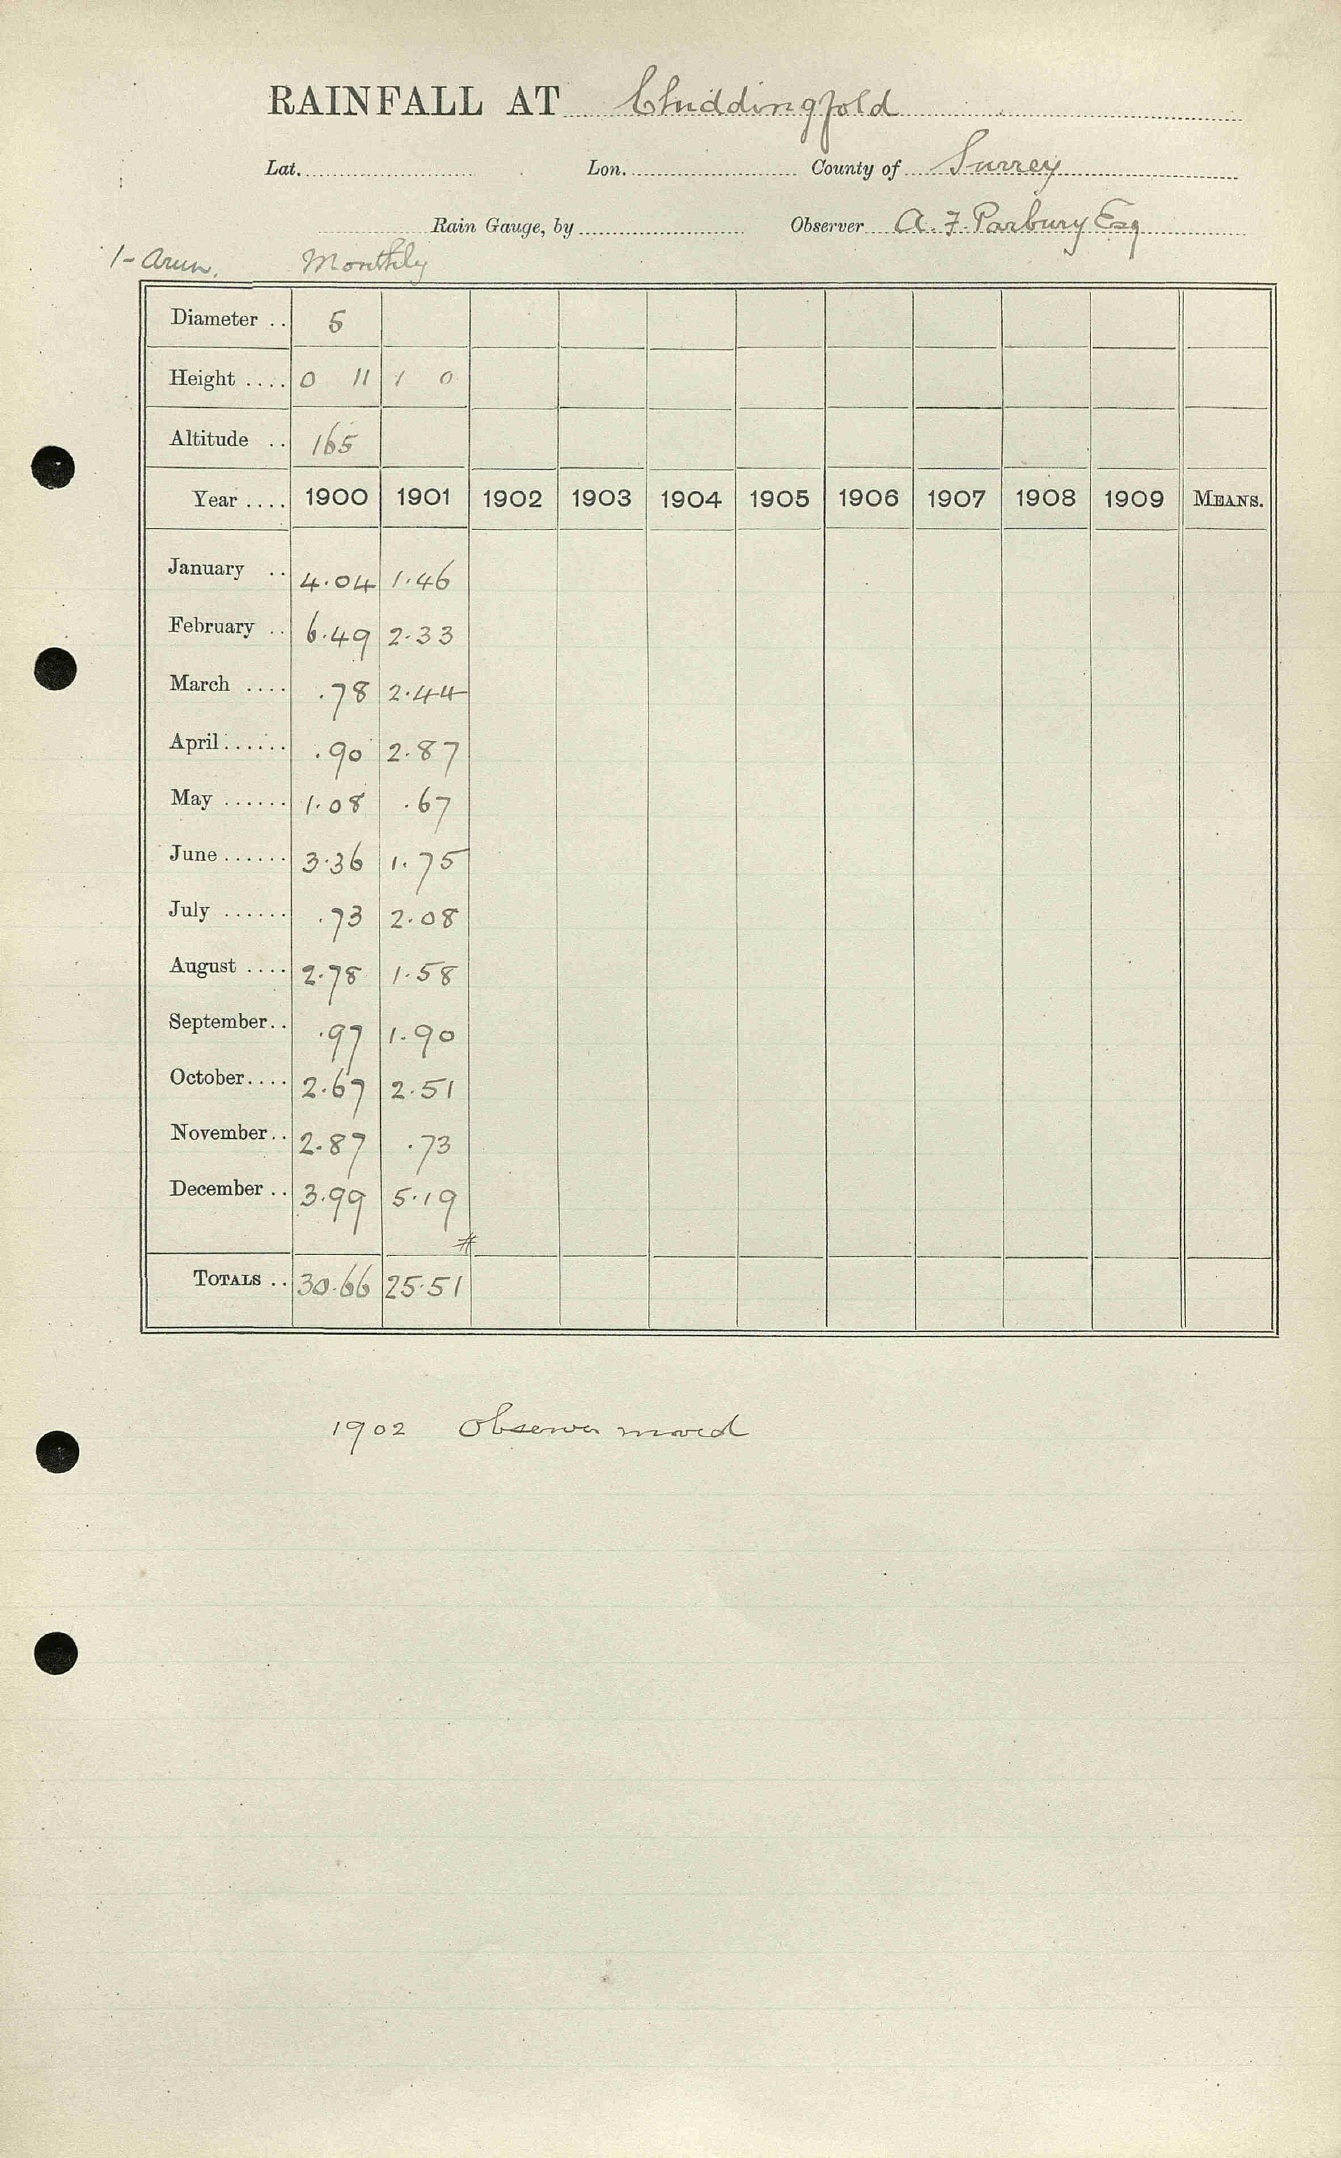 RAINFALL AT Chiddingfold
Lat. Lon. County of Surrey
Rain Gauge, by Observer A. F. Parbury Esq
1 - Arun. Monthly
Diameter .. 5
Height .... 0 11 1 0
Altitude .. 165
Year .... 1900 1901 1902 1903 1904 1905 1906 1907 1908 1909 MEANS.
January .. 4.04 1.46
February .. 6.49 2.33
March .... .78 2.44
April ...... .90 2.87
May ...... 1.08 .67
June ...... 3.36 1.75
July ...... .73 2.08
August .... 2.78 1.58
September.. .97 1.90
October.... 2.67 2.51
November.. 2.87 .73
December .. 3.99 5.19
#
TOTALS .. 30.66 25.51
1902 Observer moved